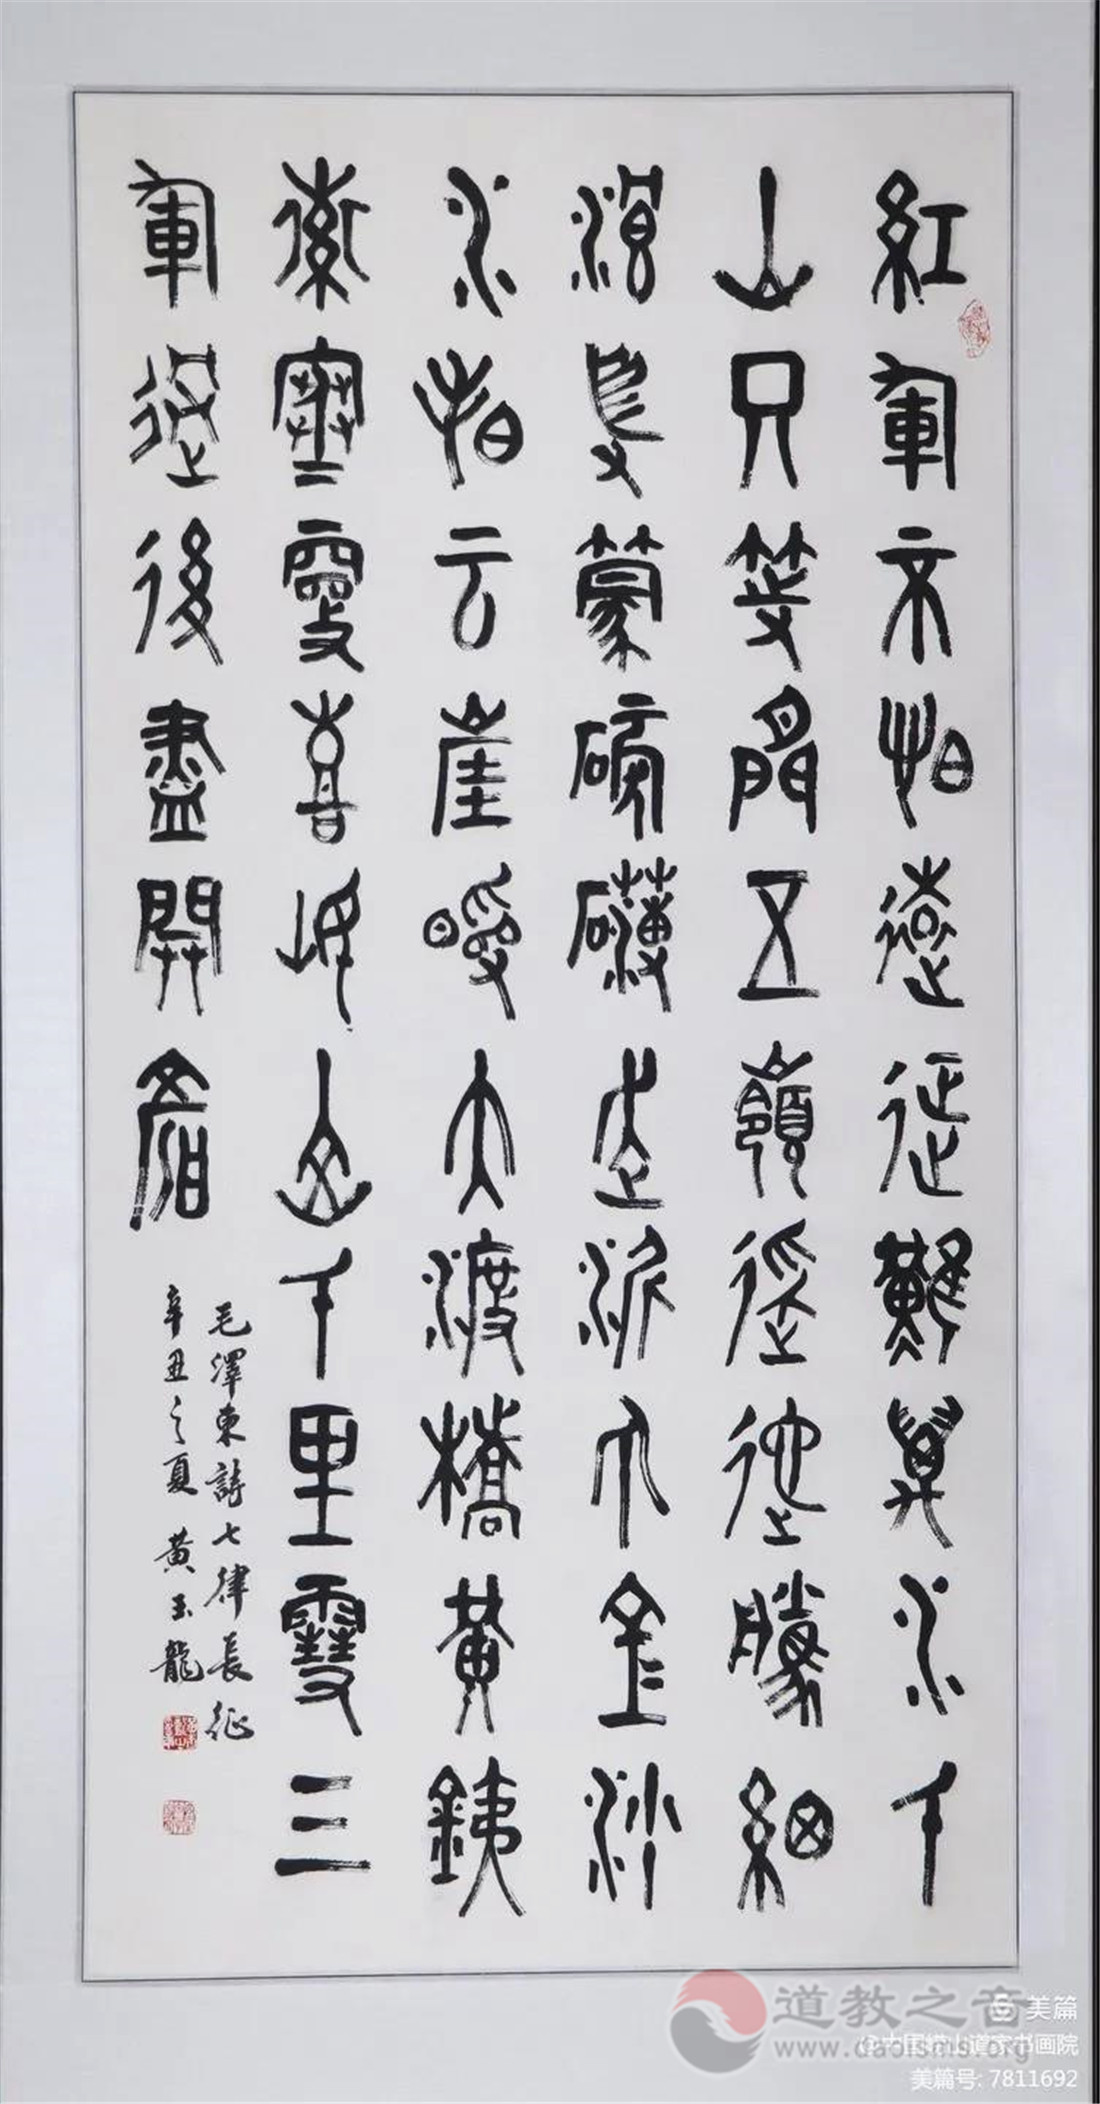 紅軍不怕遠征難萬水千
山只等閒五嶺逶迤騰細
浪烏蒙磅礴走泥丸金沙
水拍云崖暖大渡橋黃銕
索寒更喜岷山千里雪三
軍過後盡開顏
毛澤東詩七律長征
辛丑之夏 黃玉龍
道教之音
www.daoisms.org
美篇
@中国崂山道家书画院
美篇号: 7811692